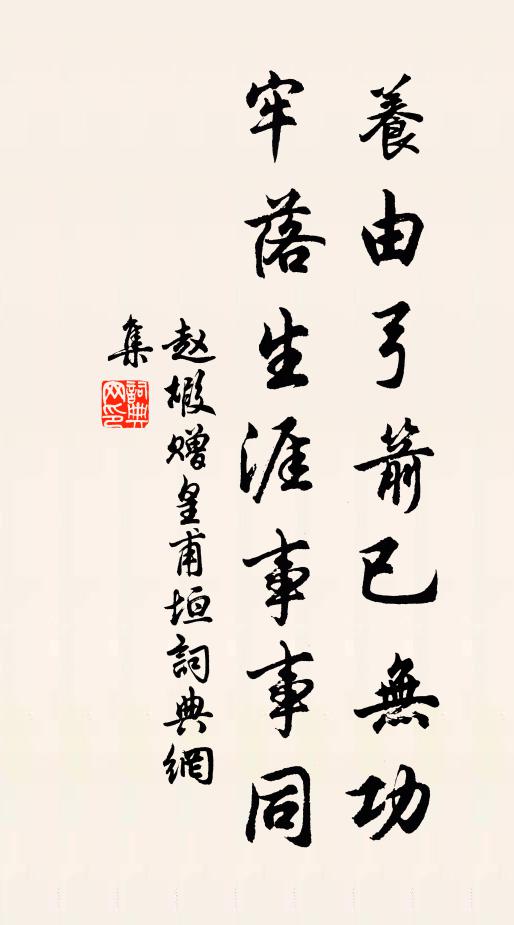 養由弓箭已無功
牢落生涯事事同
赵嘏赠皇甫垣詞典網
集
詞典
网印